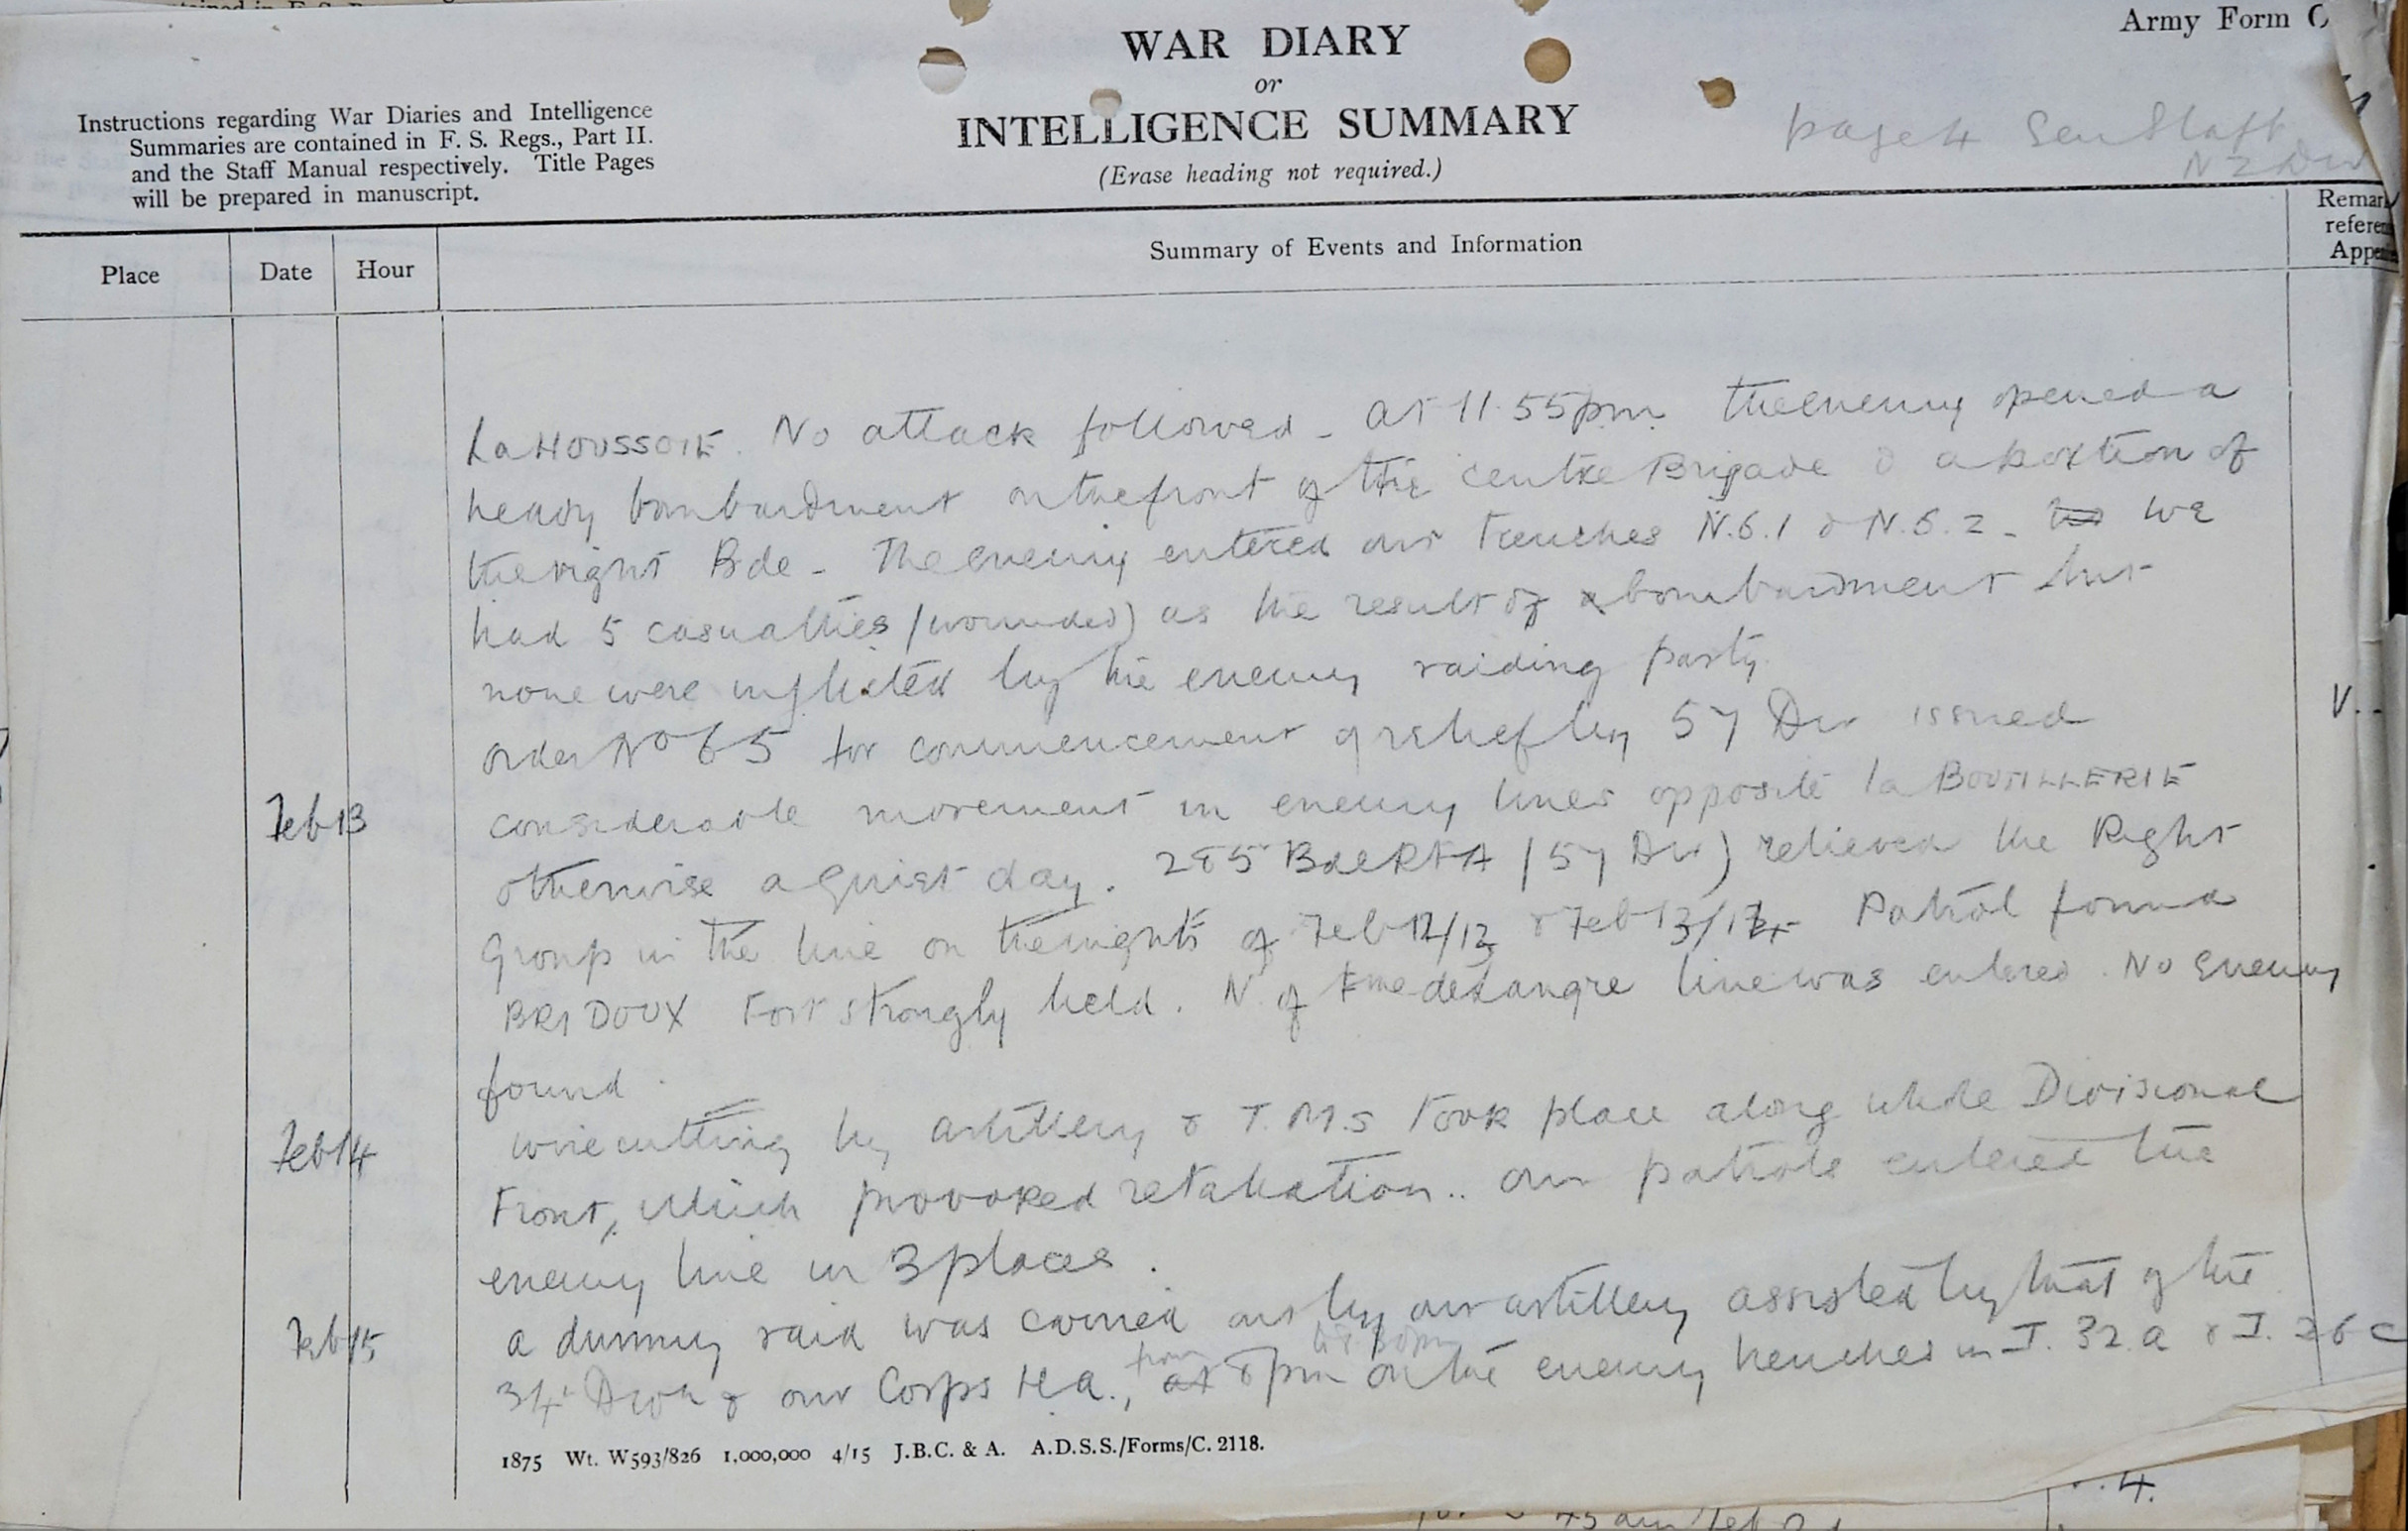 WAR DIARY
or
INTELLIGENCE SUMMARY
(Erase heading not required.)
Army Form C
Instructions regarding War Diaries and Intelligence
Summaries are contained in F. S. Regs., Part II.
and the Staff Manual respectively. Title Pages
will be prepared in manuscript.
page 4 Gen Staff
N Z Div
Place
Date
Hour
Summary of Events and Information
Remar
refere
Appe
La HOUSSOIE. No attack followed - at 11.55pm. the enemy opened a
heavy bombardment on the front of the centre Brigade & a portion of
the right Bde - The enemy entered our trenches N.6.1 & N.6.2 - we
had 5 casualties (wounded) as the result of bombardment but
none were inflicted by the enemy raiding party.
Order No 65 for commencement of relief by 57 Div issued
V..
Feb 13
considerable movement in enemy lines opposite la BOUTILLERIE
otherwise a quiet day. 285 Bde RFA (57 Div) relieved the Right
Group in the line on the nights of Feb 12/13 & Feb 13/14. Patrol found
BRIDOUX Fort strongly held. N. of line was entered. No enemy
found.
Feb 14
wirecutting by artillery & T.M.s took place along whole Divisional
Front, which provoked retaliation.. our patrols entered the
enemy line in 3 places.
Feb 15
a dummy raid was carried out by our artillery assisted by that of the
34 Divn & our Corps H.A., from 8pm on the enemy trenches in I. 32.a & I. 26 c
1875 Wt. W593/826 1,000,000 4/15 J.B.C. & A. A.D.S.S./Forms/C. 2118.
..4.